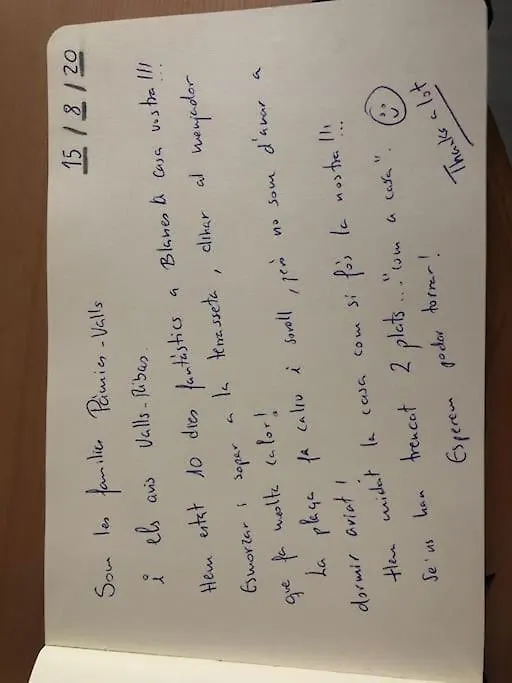 15/8/20
Som les famílies Pàmies-Valls
i els avis Valls-Ribas.
Hem estat 10 dies fantàstics a Blanes a casa vostra!!!
Esmorzar i sopar a la terrasseta, dinar al menjador
que fa molta calor!
La plaça fa caliu i soroll, però no som d'anar a
dormir aviat!
Hem cuidat la casa com si fós la nostra!!!...
Se'ns han trencat 2 plats..."com a casa". 
Esperem poder tornar!
Thanks a lot